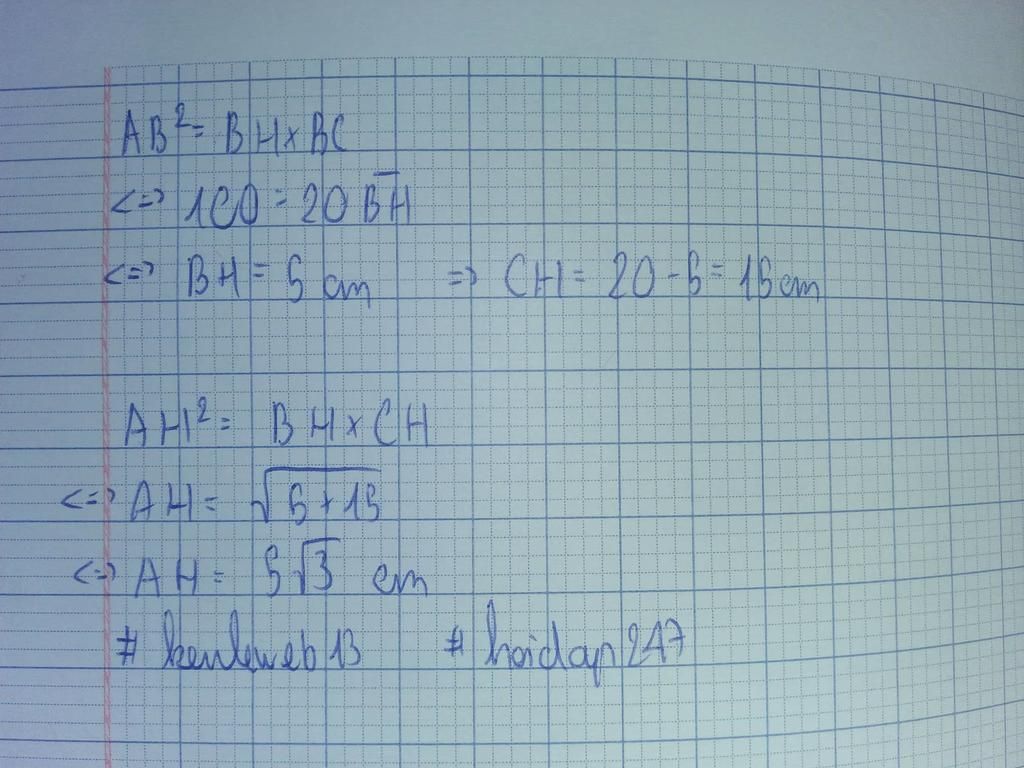 AB² = BH × BC
<=> 100 = 20 BH
<=> BH = 5 cm => CH = 20 - 5 = 15 cm
AH² = BH × CH
<=> AH = √5+15
<=> AH = 5√3 cm
# 13 # hoidap247